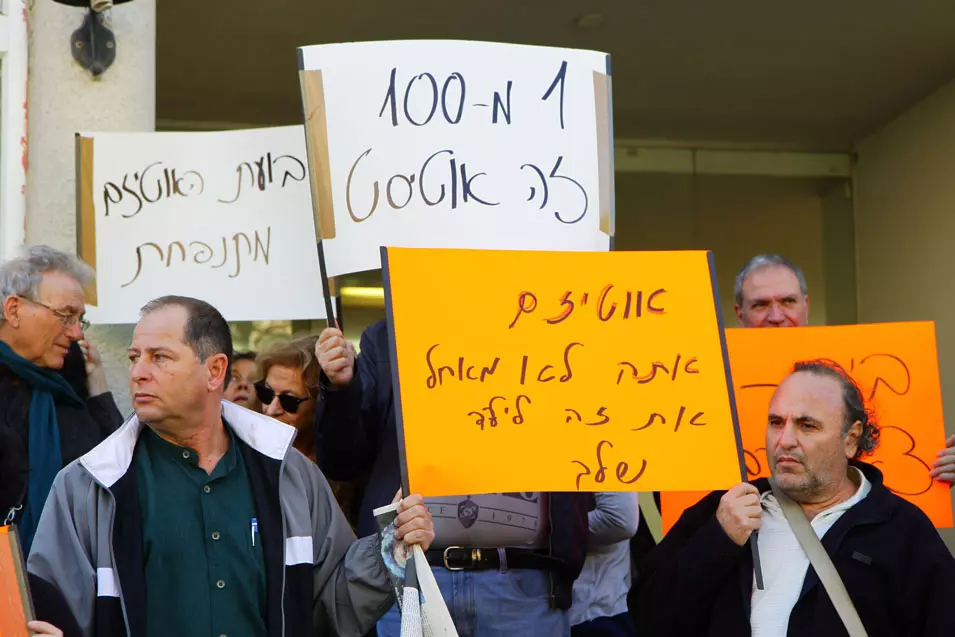 בועת האוטיזם
מתנפחת
1 מ-100
זה אוטיסט
אוטיזם
אתה לא מאחל
את זה לילד